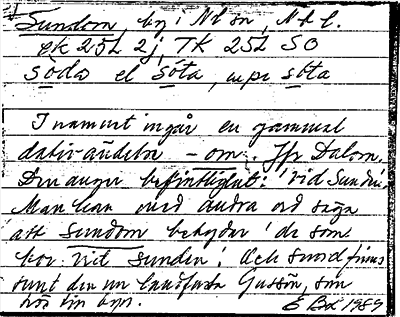 Sundom, by i Nl sn, Nbl.
ek 25L 2j, TK 25L SO
söda el söta, mpi söta
I namnet ingår en gammal
dativändelse -om. Jfr Dalom.
Den anger befintlighet: 'vid Sundu'.
Man kan med andra ord säga
att sundom betyder 'de som
bor vid sunden'. Och sund finns
runt den nu landfasta Gussön, som
hör till byn.
E Br 1989